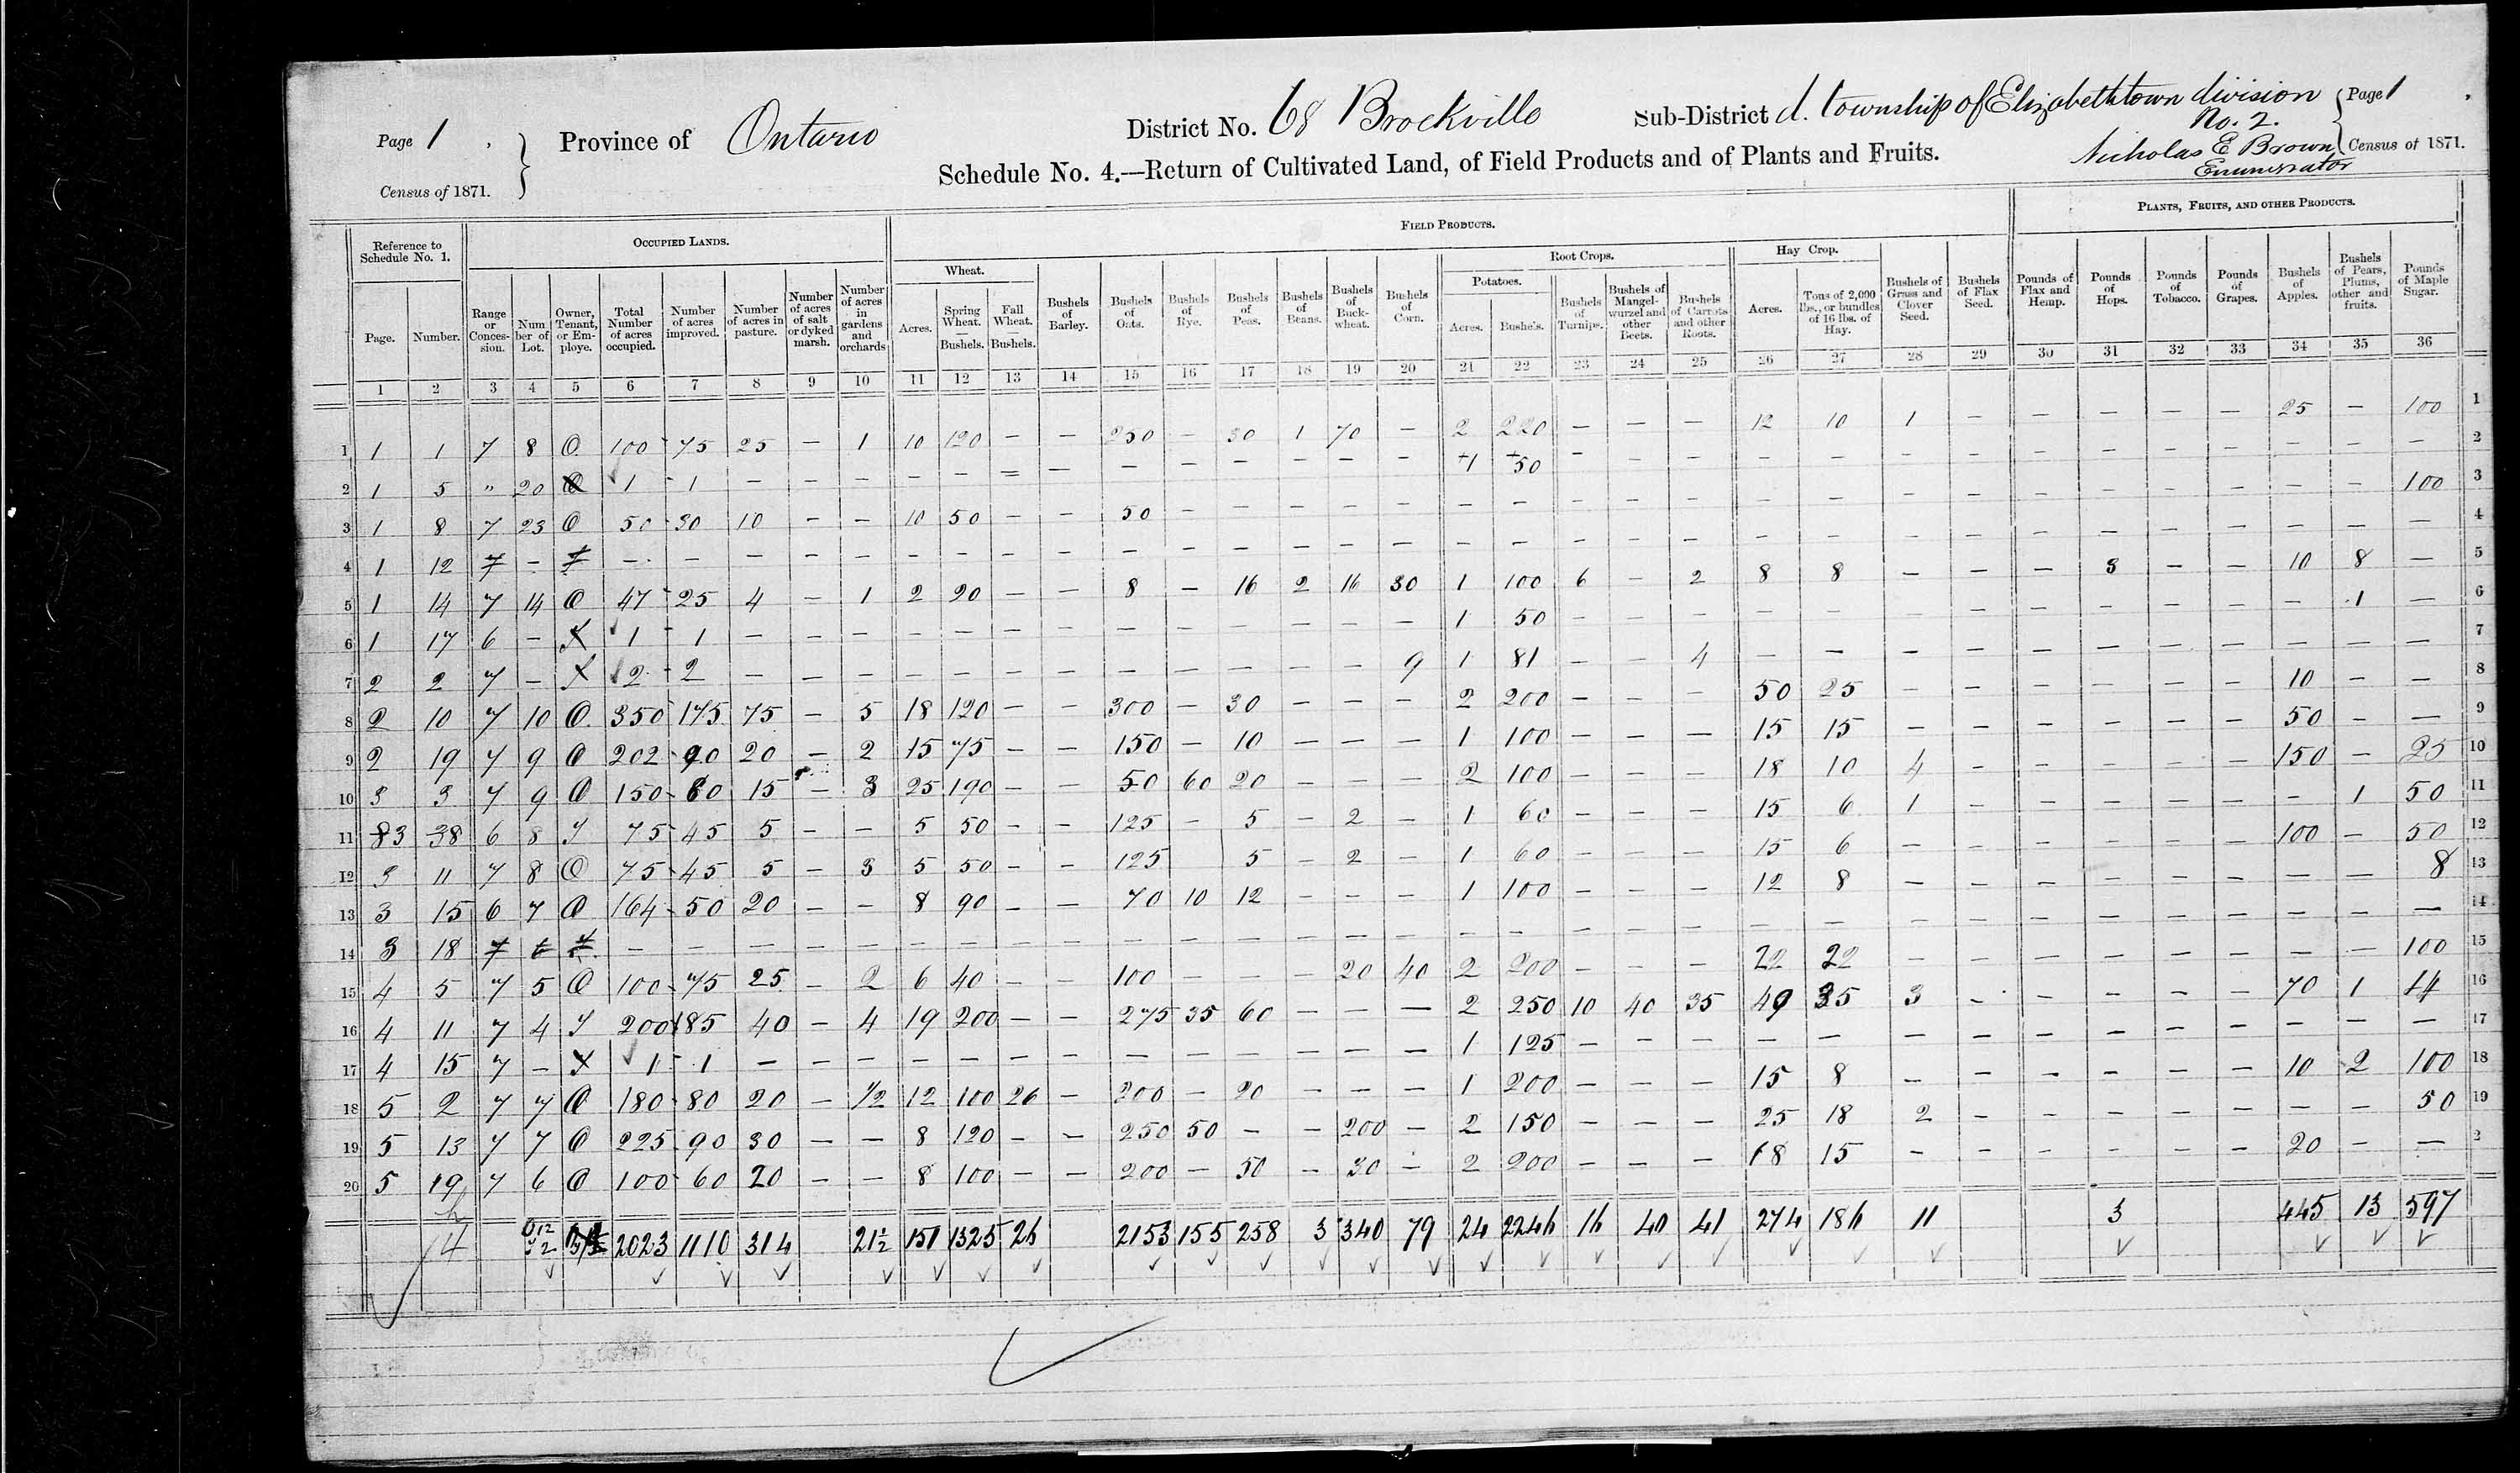 Page 1
Census of 1871.
Province of Ontario
District No. 68 Brockville
Sub-District d. township of Elizabethtown division
No. 2.
Page 1
Census of 1871.
Nicholas E Brown
Enumerator
Schedule No. 4.—Return of Cultivated Land, of Field Products and of Plants and Fruits.
Reference to Schedule No. 1.
OCCUPIED LANDS.
FIELD PRODUCTS.
PLANTS, FRUITS, AND OTHER PRODUCTS.
Wheat.
Root Crops.
Potatoes.
Hay Crop.
Page.
Number.
Range or Conces-sion.
Num ber of Lot.
Owner, Tenant, or Em-ploye.
Total Number of acres occupied.
Number of acres improved.
Number of acres in pasture.
Number of acres of salt or dyked marsh.
Number of acres in gardens and orchards
Acres.
Spring Wheat. Bushels.
Fall Wheat. Bushels.
Bushels of Barley.
Bushels of Oats.
Bushels of Rye.
Bushels of Peas.
Bushels of Beans.
Bushels of Buck-wheat.
Bushels of Corn.
Acres.
Bushels.
Bushels of Turnips.
Bushels of Mangel-wurzel and other Beets.
Bushels of Carrots and other Roots.
Acres.
Tons of 2,000 lbs., or bundles of 16 lbs. of Hay.
Bushels of Grass and Clover Seed.
Bushels of Flax Seed.
Pounds of Flax and Hemp.
Pounds of Hops.
Pounds of Tobacco.
Pounds of Grapes.
Bushels of Apples.
Bushels of Pears, Plums, other and fruits.
Pounds of Maple Sugar.
1 2 3 4 5 6 7 8 9 10 11 12 13 14 15 16 17 18 19 20 21 22 23 24 25 26 27 28 29 30 31 32 33 34 35 36
1 1 1 7 8 O 100 75 25 — 1 10 120 — — 250 — 30 1 70 — 2 220 — — — 12 10 1 — — — — — 25 — 100 1
2 1 5 " 20 1 1 — — — — — — — — — — — — — 1 50 — — — — — — — — — — — — — — 2
3 1 8 7 23 O 50 30 10 — — 10 50 — — 50 — — — — — — — — — — — — — — — — — — — — 100 3
4 1 12 7 — — — — — — — — — — — — — — — — — — — — — — — — — — — — — — — — 4
5 1 14 7 14 O 47 25 4 — 1 2 20 — — 8 — 16 2 16 30 1 100 6 — 2 8 8 — — — 3 — — 10 8 — 5
6 1 17 6 — X 1 1 — — — — — — — — — — — — — 1 50 — — — — — — — — — — — — 1 — 6
7 2 2 7 — X 2 2 — — — — — — — — — — — — 9 1 81 — — 4 — — — — — — — — — — — 7
8 2 10 7 10 O 350 175 75 — 5 18 120 — — 300 — 30 — — — 2 200 — — — 50 25 — — — — — — 10 — — 8
9 2 19 7 9 O 202 90 20 — 2 15 75 — — 150 — 10 — — — 1 100 — — — 15 15 — — — — — — 50 — — 9
10 3 3 7 9 O 150 80 15 — 3 25 190 — — 50 60 20 — — — 2 100 — — — 18 10 4 — — — — — 150 — 25 10
11 3 8 6 8 T 75 45 5 — — 5 50 — — 125 — 5 — 2 — 1 60 — — — 15 6 1 — — — — — — 1 50 11
12 3 11 7 8 O 75 45 5 — 3 5 50 — — 125 5 — 2 — 1 60 — — — 15 6 — — — — — — 100 — 50 12
13 3 15 6 7 O 164 50 20 — — 8 90 — — 70 10 12 — — — 1 100 — — — 12 8 — — — — — — — — 8 13
14 3 18 7 — — — — — — — — — — — — — — — — — — — — — — — — — — — — — — — 14
15 4 5 7 5 O 100 75 25 — 2 6 40 — — 100 — — — 20 40 2 200 — — — 22 22 — — — — — — — — 100 15
16 4 11 7 4 T 200 185 40 — 4 19 200 — — 275 35 60 — — — 2 250 10 40 35 49 35 3 — — — — — 70 1 14 16
17 4 15 7 — X 1 1 — — — — — — — — — — — — — 1 125 — — — — — — — — — — — — — — 17
18 5 2 7 7 O 180 80 20 — 1/2 12 100 26 — 200 — 20 — — — 1 200 — — — 15 8 — — — — — — 10 2 100 18
19 5 13 7 7 O 225 90 30 — — 8 120 — — 250 50 — — 200 — 2 150 — — — 25 18 2 — — — — — — — 50 19
20 5 19 7 6 O 100 60 20 — — 8 100 — — 200 — 50 — 30 — 2 200 — — — 18 15 — — — — — — 20 — — 2
14 2023 1110 314 21 1/2 151 1325 26 2153 155 258 3 340 79 24 2246 16 40 41 274 186 11 3 445 13 597